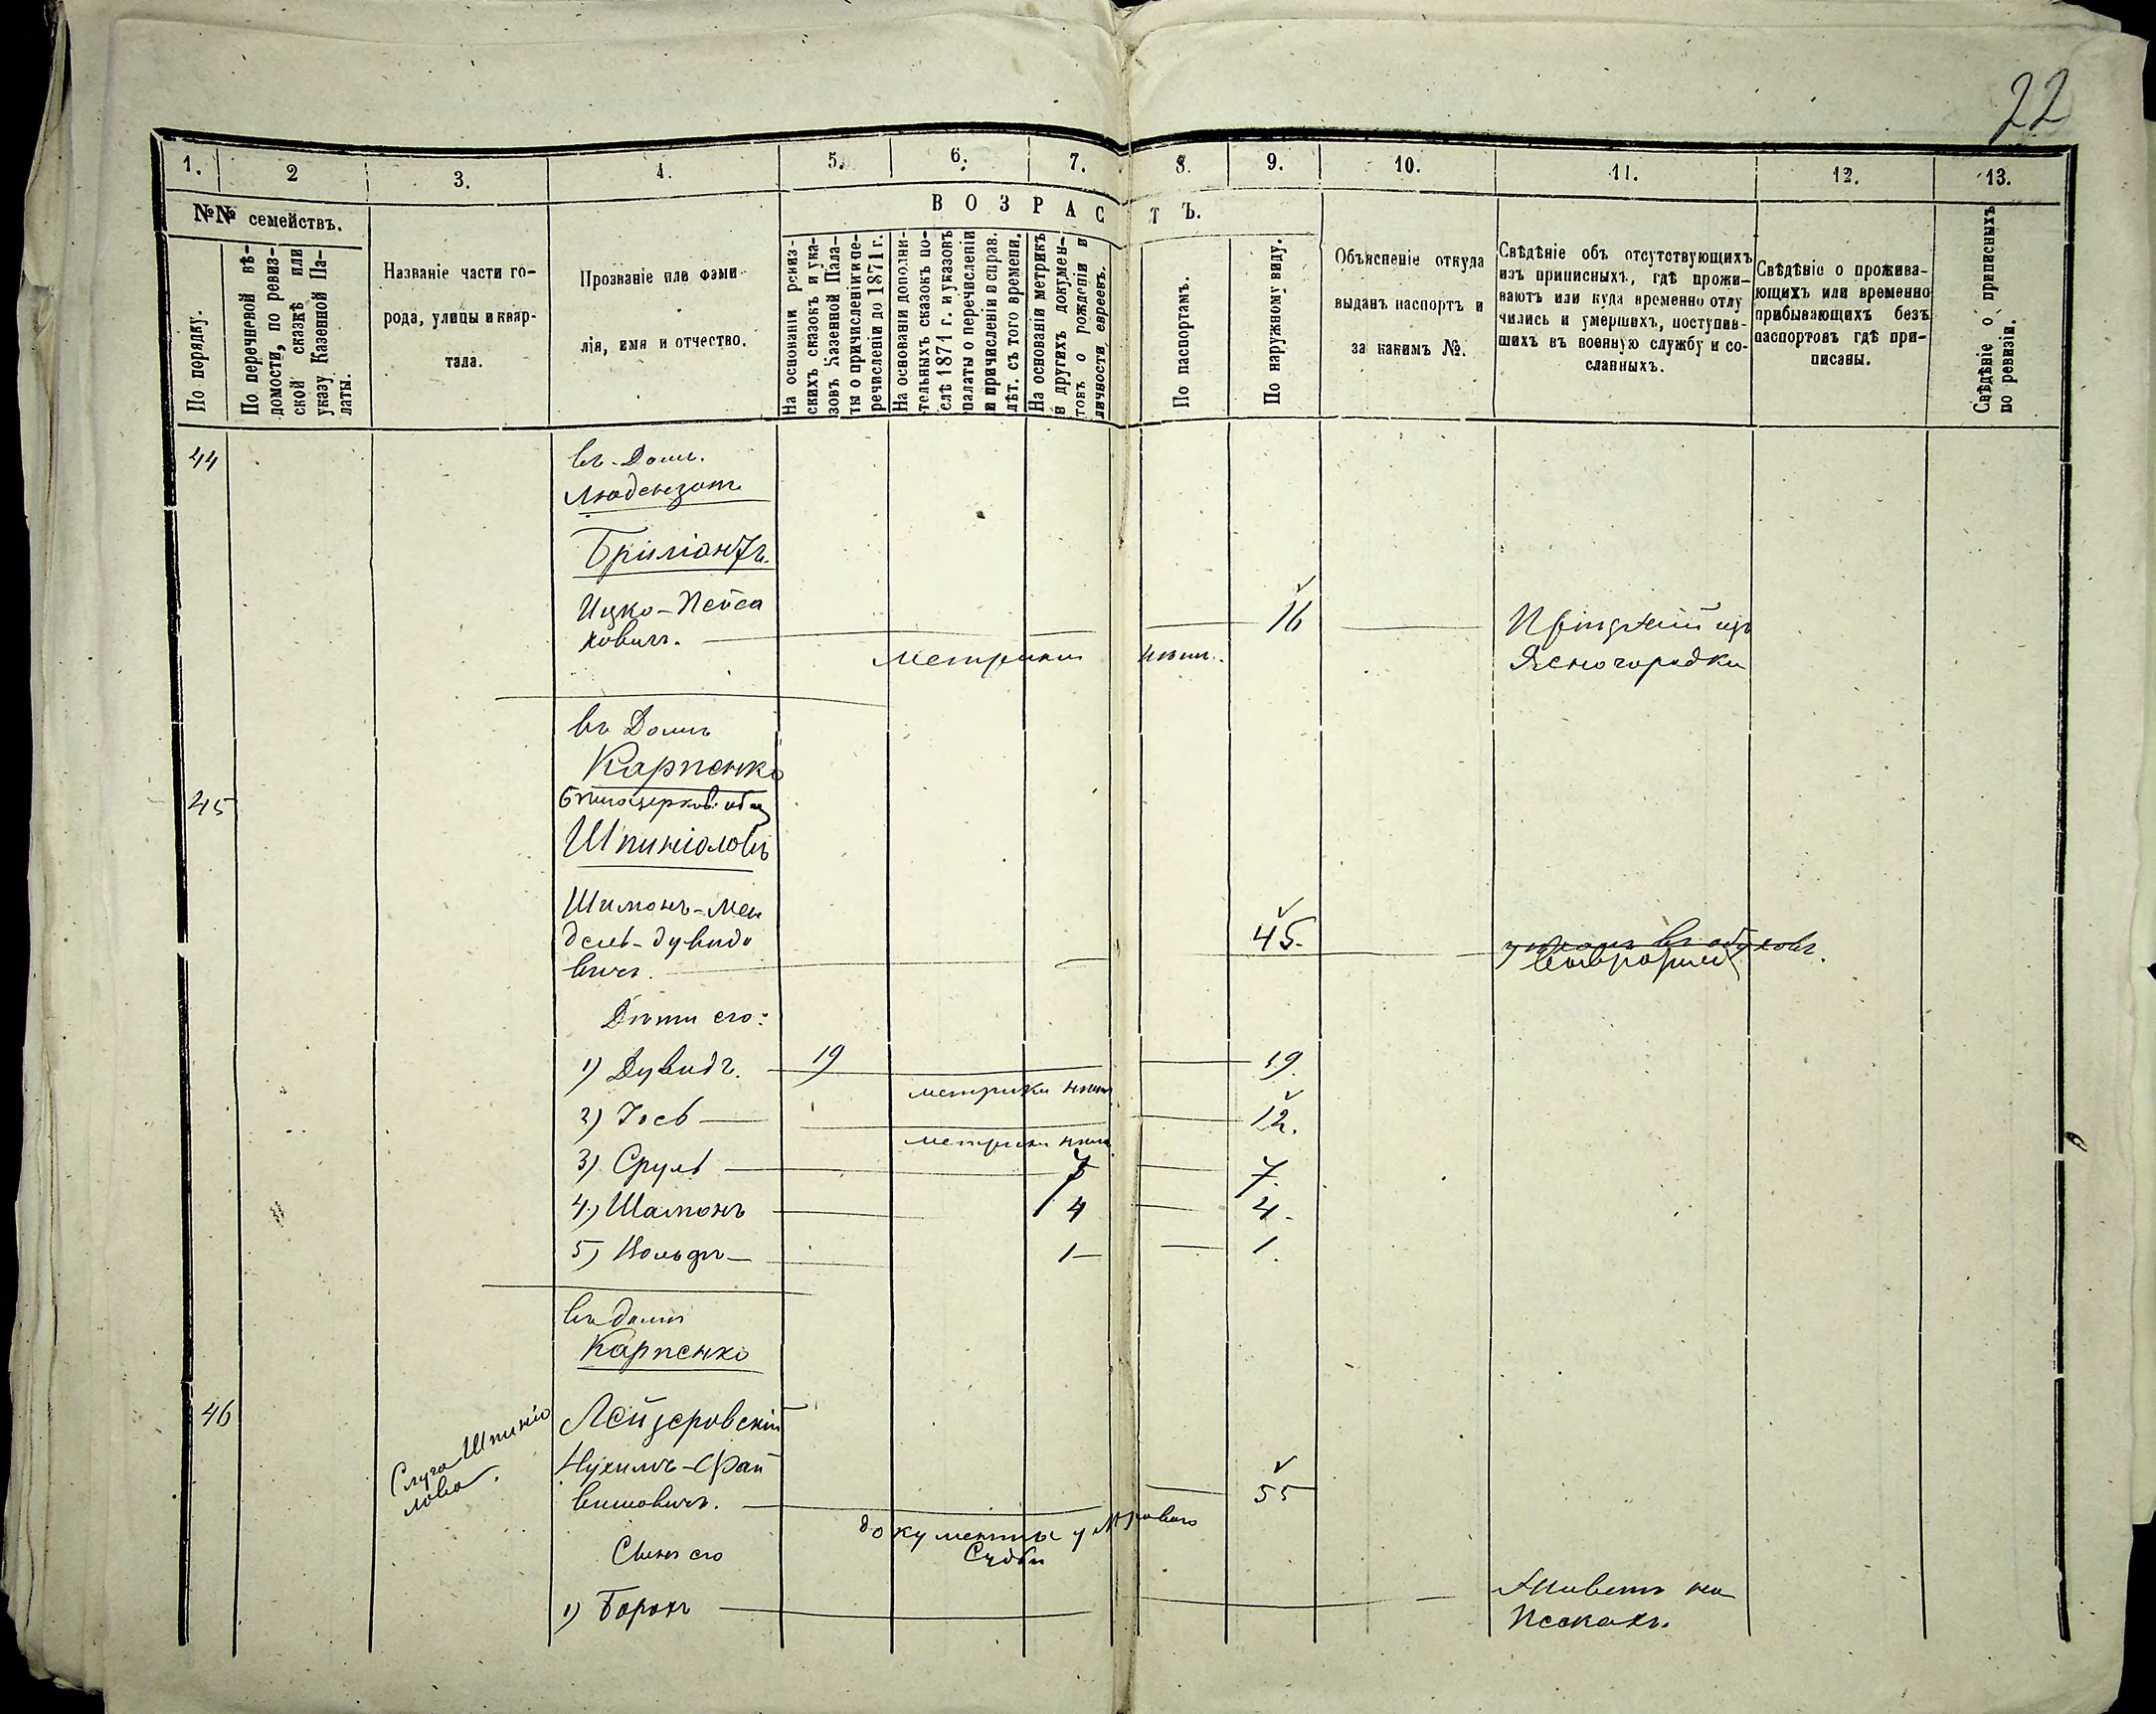 22
1. 2 3. 4. 5. 6. 7. 8. 9. 10. 11. 12. 13.
№№ семействъ.
По порядку.
По перечневой вѣ-
домости, по ревиз-
ской сказкѣ или
указу Казенной Па-
латы.
Названіе части го-
рода, улицы и квар-
тала.
Прозваніе или фами-
лія, имя и отчество.
ВОЗРАСТЪ.
На основаніи ревиз-
скихъ сказокъ и ука-
зовъ Казенной Пала-
ты о причисленіи и пе-
речисленіи до 1871 г.
На основаніи дополни-
тельныхъ сказокъ по-
слѣ 1871 г. и указовъ
палаты о перечисленіи
и причисленіи в справ.
лѣт. съ того времени.
На основаніи метрикъ
и другихъ докумен-
товъ о рожденіи и
личности евреевъ.
По паспортамъ.
По наружному виду.
Объясненіе откуда
выданъ паспортъ и
за какимъ №.
Свѣдѣніе объ отсутствующихъ
изъ приписныхъ, гдѣ прожи-
ваютъ или куда временно отлу
чились и умершихъ, поступив-
шихъ въ военную службу и со-
сланныхъ.
Свѣдѣніе о прожива-
ющихъ или временно
прибывающихъ безъ
паспортовъ гдѣ при-
писаны.
Свѣдѣніе о приписныхъ
по ревизіи.
44
въ Дом.
Бриліантъ.
Ицко-Пейса
ховичъ. 16
метрики нѣтъ.
изъ
Ясногородки
въ Домѣ
Карпенко
45
Шпиніоловъ
Шимонъ-Мен
дель-дувидо
вичъ. 45.
Дѣти его:
1) Дувидъ. 19 19.
метрики нѣтъ
2) Іось 12.
метрики нѣтъ
3) Сруль 7 7.
4) Шамонъ 4 4.
5) Вольфъ 1 1.
въ домѣ
Карпенко
46
Слуга Шпиніо
лова.
Лейзеровскій
Нухимъ-Фай
вишовичъ. 55
документы у Мирового
Судьи
Сынъ его
1) Борохъ
Живетъ на
Пескахъ.